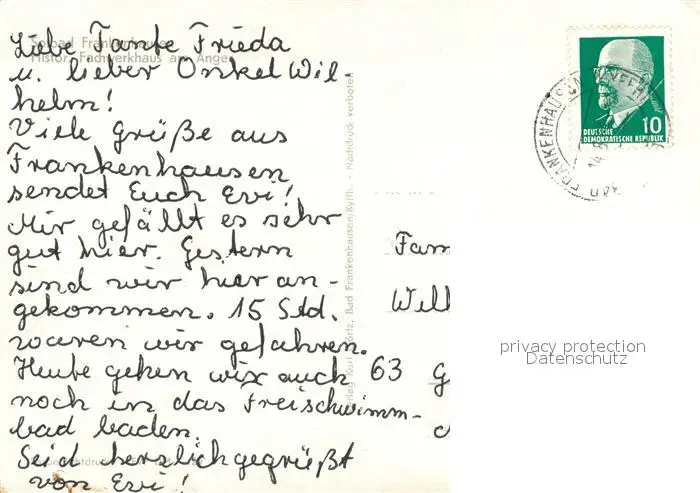 Solbad Frankenhausen
Histor. Fachwerkhaus am Anger
Liebe Tante Frieda
u. lieber Onkel Wil
helm!
Viele Grüße aus
Frankenhausen
sendet Euch Evi!
Mir gefällt es sehr
gut hier. Gestern
sind wir hier an-
gekommen. 15 Std.
waren wir gefahren.
Heute gehen wir auch
noch in das Freischwimm-
bad baden.
Seid herzlich gegrüßt
von Evi!
Verlag Kurt Bad Frankenhausen/Kyffh. - Nachdruck verboten
DEUTSCHE
DEMOKRATISCHE REPUBLIK
10
BAD FRANKENHAUSEN
Fam
Wilh
63 G
privacy protection
Datenschutz